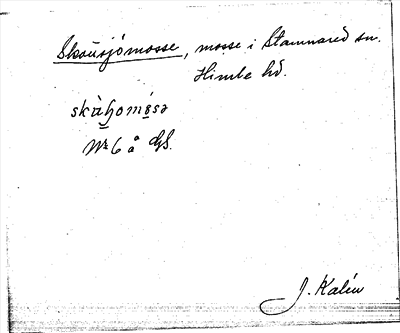 Skåusjömosse, mosse i Stamnared sn.
Himle hd.
skàɧomósə
Nr 6 å GS.
J. Kalén